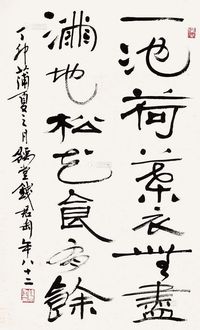 一池荷葉衣無盡
滿地松花食有餘
丁卯蒲夏之月豫堂錢君匋年八十二